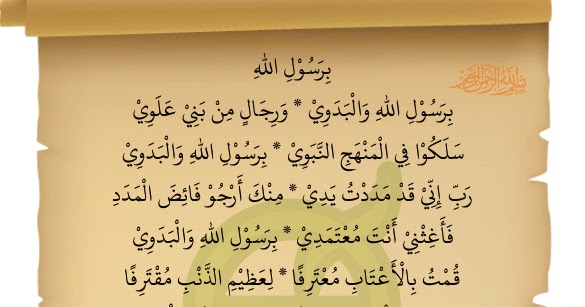 بِرَسُوْلِ اللهِ
بِرَسُوْلِ اللهِ وَالْبَدَوِيْ * وَرِجَالٍ مِنْ بَنِيْ عَلَوِيْ
سَلَكُوْا فِي الْمَنْهَجِ النَّبَوِيْ * بِرَسُوْلِ اللهِ وَالْبَدَوِيْ
رَبِّ إِنِّيْ قَدْ مَدَدْتُ يَدِيْ * مِنْكَ أَرْجُوْ فَائِضَ الْمَدَدِ
فَأَغِثْنِيْ أَنْتَ مُعْتَمَدِيْ * بِرَسُوْلِ اللهِ وَالْبَدَوِيْ
قُمْتُ بِالْأَعْتَابِ مُعْتَرِفًا * لِعَظِيْمِ الذَّنْبِ مُقْتَرِفًا